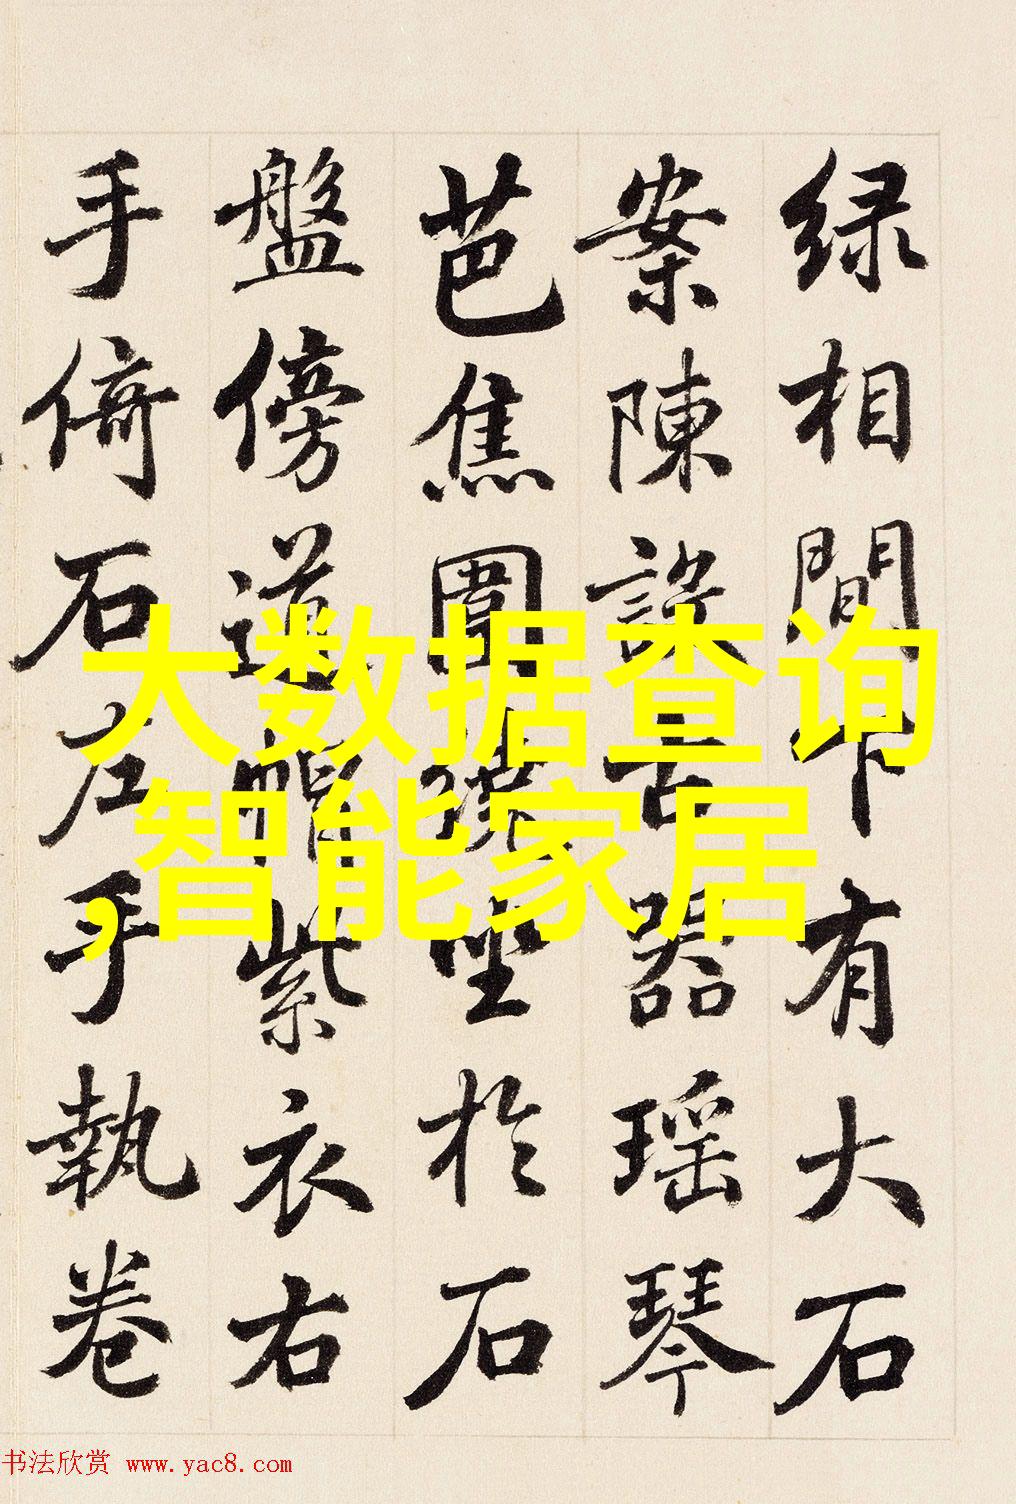 绿相間下有大石
案陳設古器瑶琴
芭焦圍繞坐於石
盤傍道帽紫衣右
手倚石左手執卷
大数据查询
,智能家居
书法欣赏 www.yac8.com